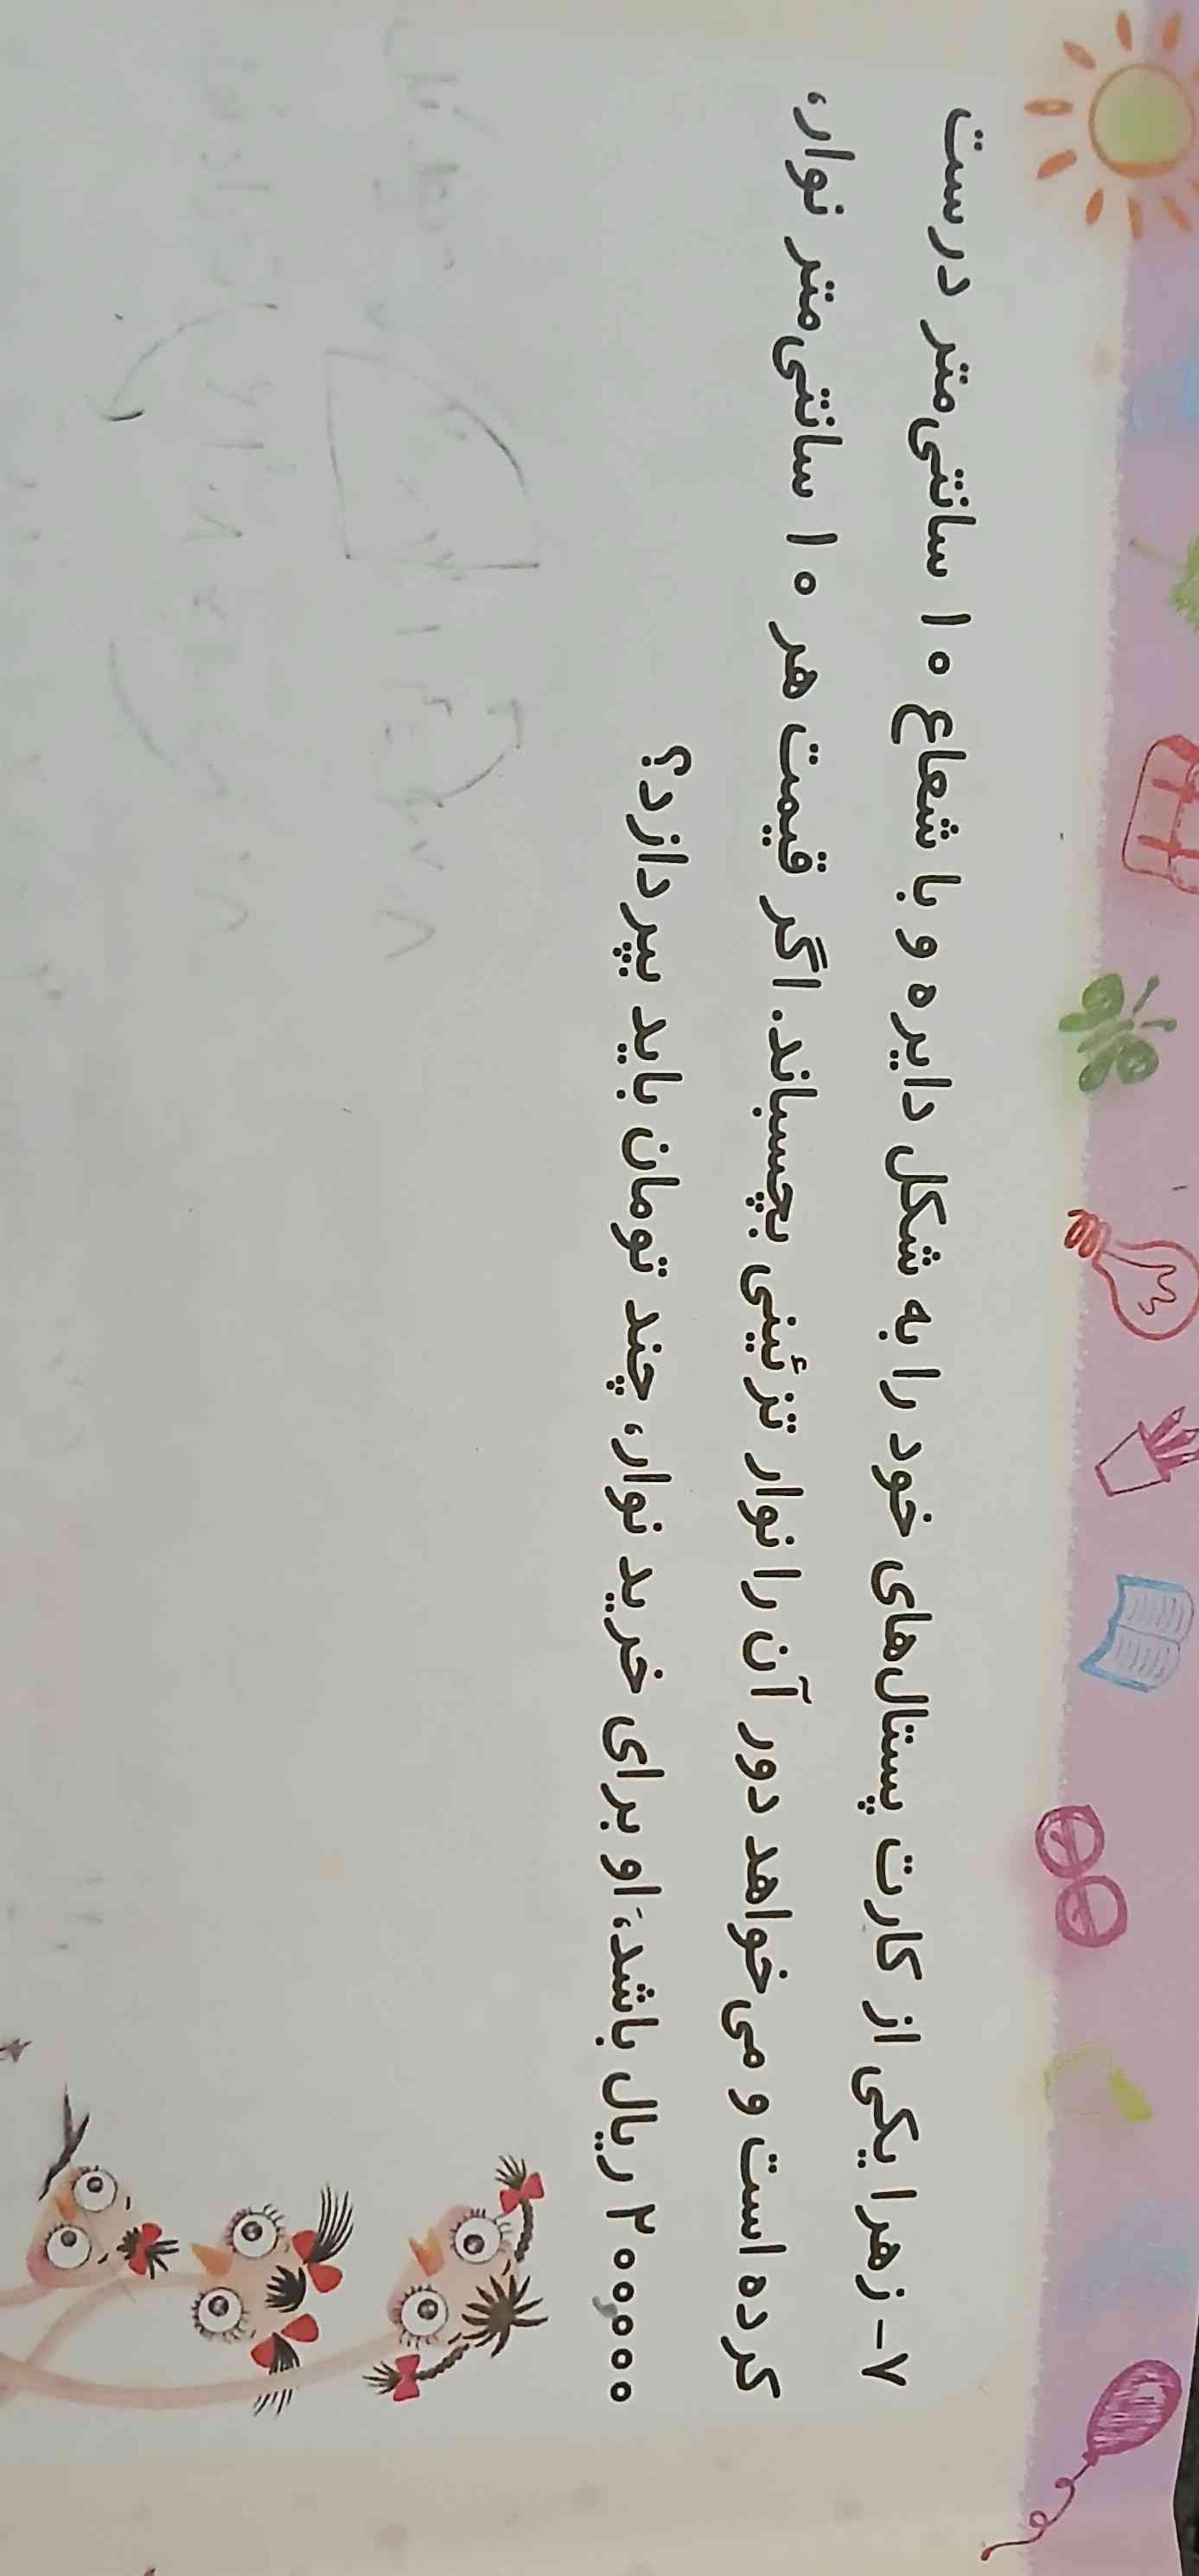 ۷- زهرا یکی از کارت پستال‌های خود را به شکل دایره و با شعاع ۱۰ سانتی‌متر درست
کرده است و می‌خواهد دور آن را نوار تزئینی بچسباند. اگر قیمت هر ۱۰ سانتی‌متر نوار،
۲۰۰,۰۰۰ ریال باشد، او برای خرید نوار، چند تومان باید بپردازد؟